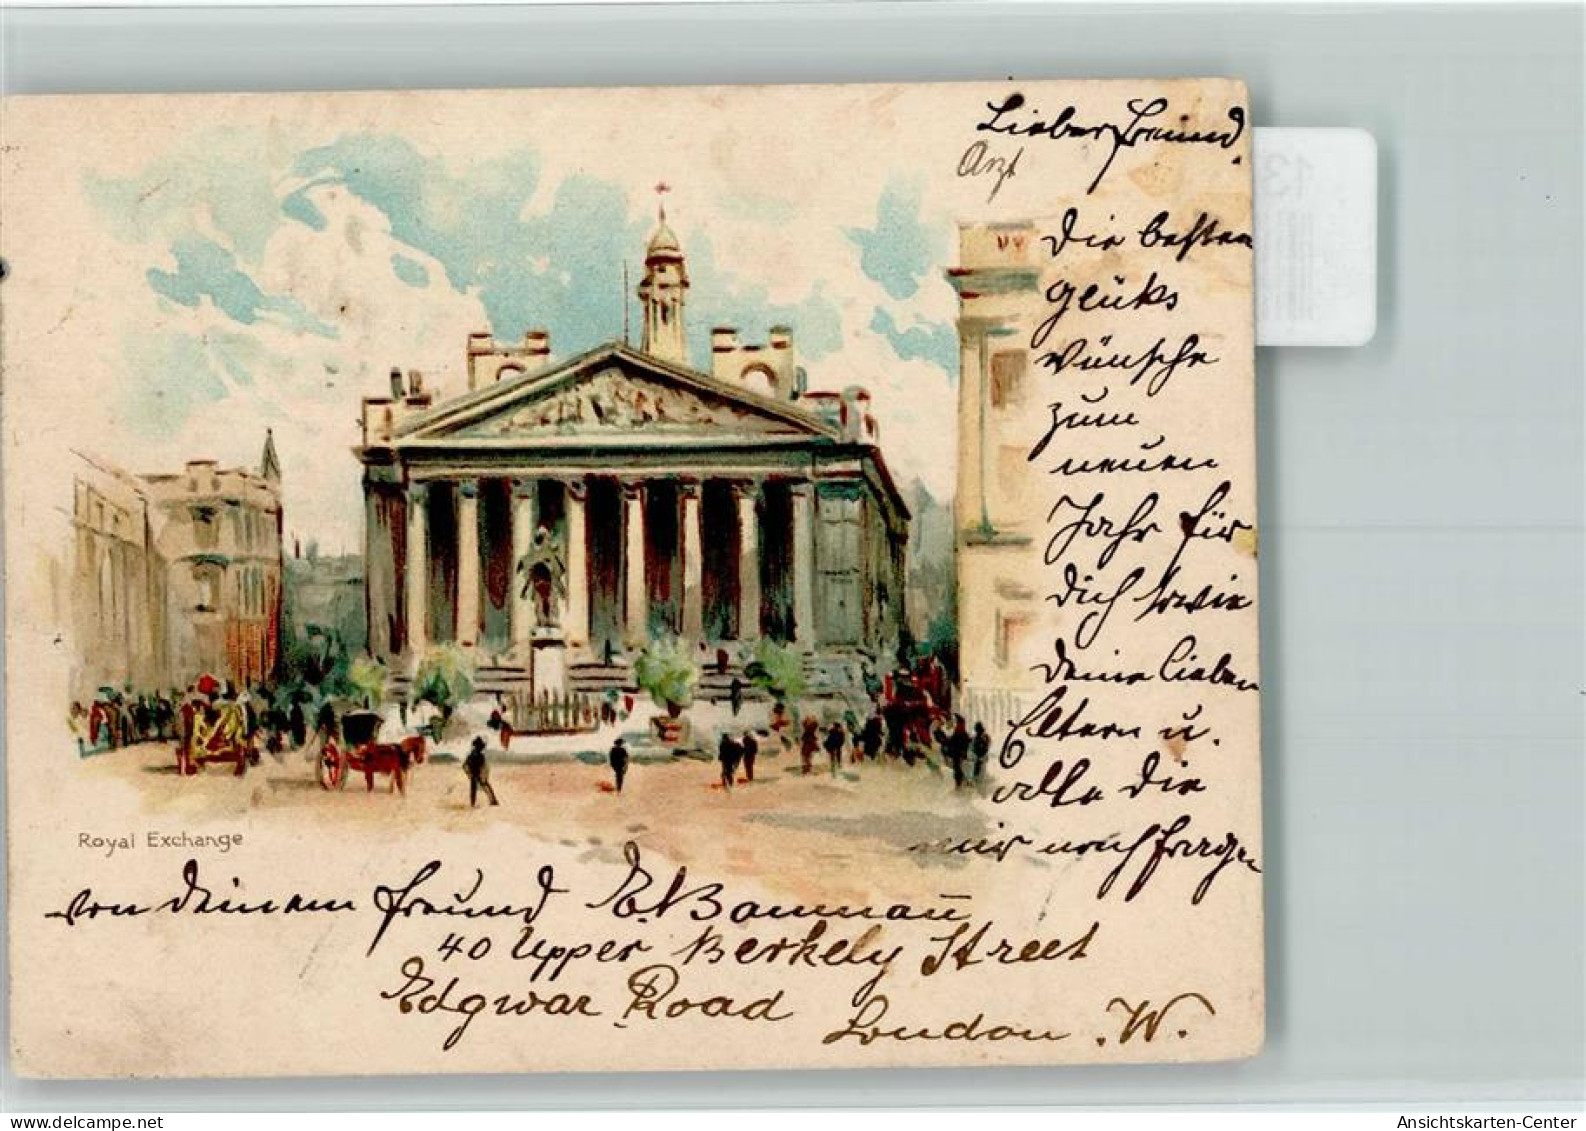 Lieber Freund.
Arzt
Die besten
glüks
Wünsche
zum
neuen
Jahr für
Dich sowie
Deine lieben
Eltern u.
alle die
mir nach fragen
Royal Exchange
von deinem Freund E. Baumann
40 Upper Berkely Street
Edgwar Road
London . W.
13
delcampe.net
Ansichtskarten-Center